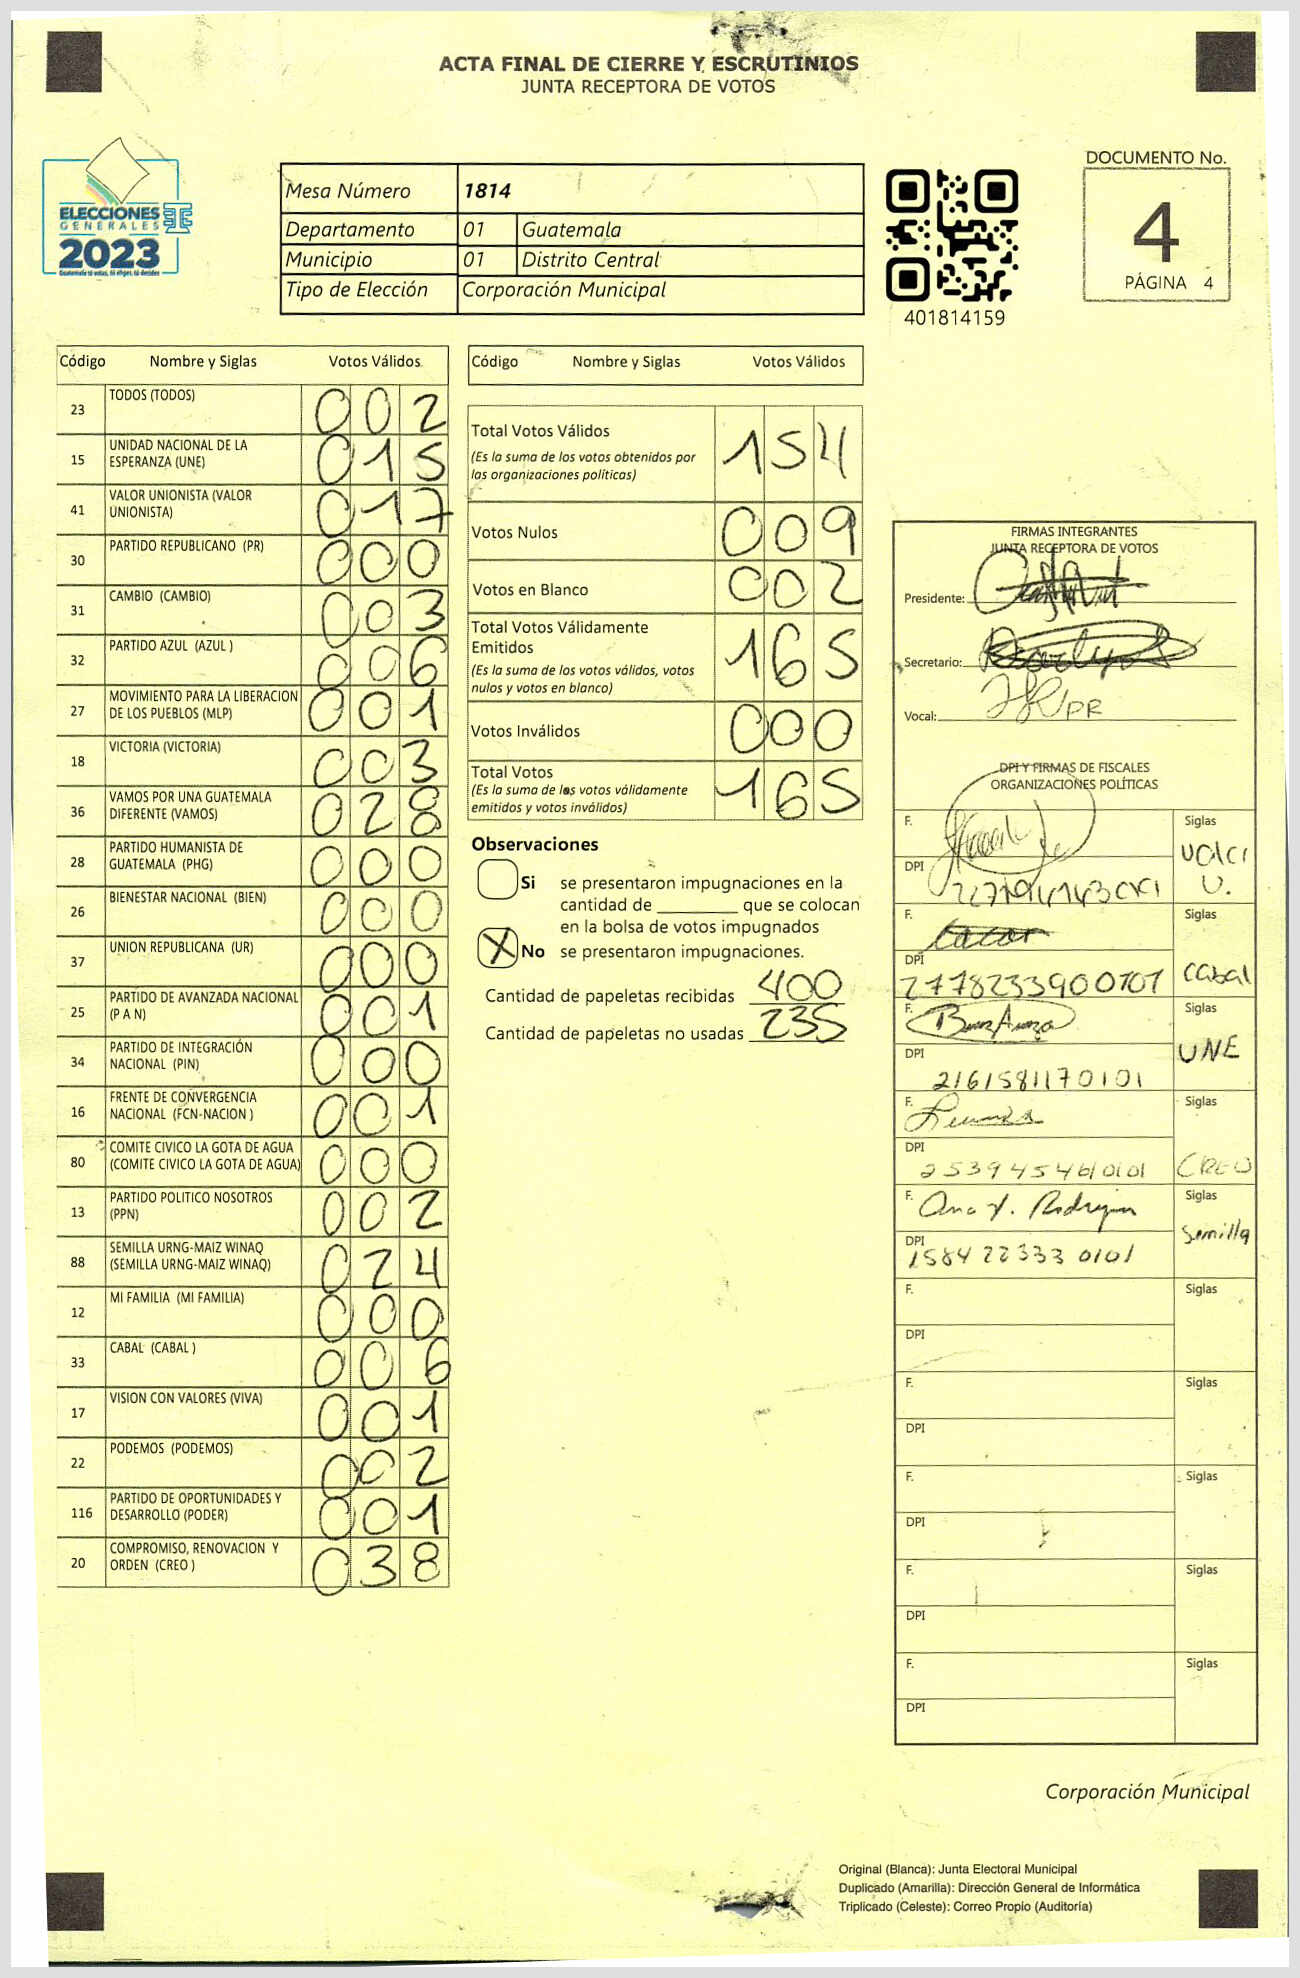 ACTA FINAL DE CIERRE Y ESCRUTINIOS
JUNTA RECEPTORA DE VOTOS
ELECCIONES
GENERALES
2023
Guatemala tú votas, tú eliges, tú decides
Mesa Número 1814
Departamento 01 Guatemala
Municipio 01 Distrito Central
Tipo de Elección Corporación Municipal
401814159
DOCUMENTO No.
4
PÁGINA 4
Código Nombre y Siglas Votos Válidos
23 TODOS (TODOS) 002
15 UNIDAD NACIONAL DE LA ESPERANZA (UNE) 015
41 VALOR UNIONISTA (VALOR UNIONISTA) 017
30 PARTIDO REPUBLICANO (PR) 000
31 CAMBIO (CAMBIO) 003
32 PARTIDO AZUL (AZUL ) 006
27 MOVIMIENTO PARA LA LIBERACION DE LOS PUEBLOS (MLP) 001
18 VICTORIA (VICTORIA) 003
36 VAMOS POR UNA GUATEMALA DIFERENTE (VAMOS) 028
28 PARTIDO HUMANISTA DE GUATEMALA (PHG) 000
26 BIENESTAR NACIONAL (BIEN) 000
37 UNION REPUBLICANA (UR) 000
25 PARTIDO DE AVANZADA NACIONAL (P A N) 001
34 PARTIDO DE INTEGRACIÓN NACIONAL (PIN) 000
16 FRENTE DE CONVERGENCIA NACIONAL (FCN-NACION ) 001
80 COMITE CIVICO LA GOTA DE AGUA (COMITE CIVICO LA GOTA DE AGUA) 000
13 PARTIDO POLITICO NOSOTROS (PPN) 002
88 SEMILLA URNG-MAIZ WINAQ (SEMILLA URNG-MAIZ WINAQ) 024
12 MI FAMILIA (MI FAMILIA) 000
33 CABAL (CABAL ) 006
17 VISION CON VALORES (VIVA) 001
22 PODEMOS (PODEMOS) 002
116 PARTIDO DE OPORTUNIDADES Y DESARROLLO (PODER) 001
20 COMPROMISO, RENOVACION Y ORDEN (CREO ) 038
Código Nombre y Siglas Votos Válidos
Total Votos Válidos 154
(Es la suma de los votos obtenidos por
las organizaciones políticas)
Votos Nulos 009
Votos en Blanco 002
Total Votos Válidamente
Emitidos 165
(Es la suma de los votos válidos, votos
nulos y votos en blanco)
Votos Inválidos 000
Total Votos 165
(Es la suma de los votos válidamente
emitidos y votos inválidos)
Observaciones
Si se presentaron impugnaciones en la
cantidad de ________ que se colocan
en la bolsa de votos impugnados
X No se presentaron impugnaciones.
Cantidad de papeletas recibidas 400
Cantidad de papeletas no usadas 235
FIRMAS INTEGRANTES
JUNTA RECEPTORA DE VOTOS
Presidente:
Secretario:
Vocal:
DPI Y FIRMAS DE FISCALES
ORGANIZACIONES POLÍTICAS
F. Siglas
DPI U.
F. Siglas
DPI 2778233900101 Cabal
F. Siglas
DPI 2161581170101 UNE
F. Siglas
DPI 2539454610101 CREO
F. Ana Y. Rodriguez Siglas
DPI 1584 22333 0101 Semilla
F. Siglas
DPI
F. Siglas
DPI
F. Siglas
DPI
F. Siglas
DPI
F. Siglas
DPI
Corporación Municipal
Original (Blanca): Junta Electoral Municipal
Duplicado (Amarilla): Dirección General de Informática
Triplicado (Celeste): Correo Propio (Auditoría)